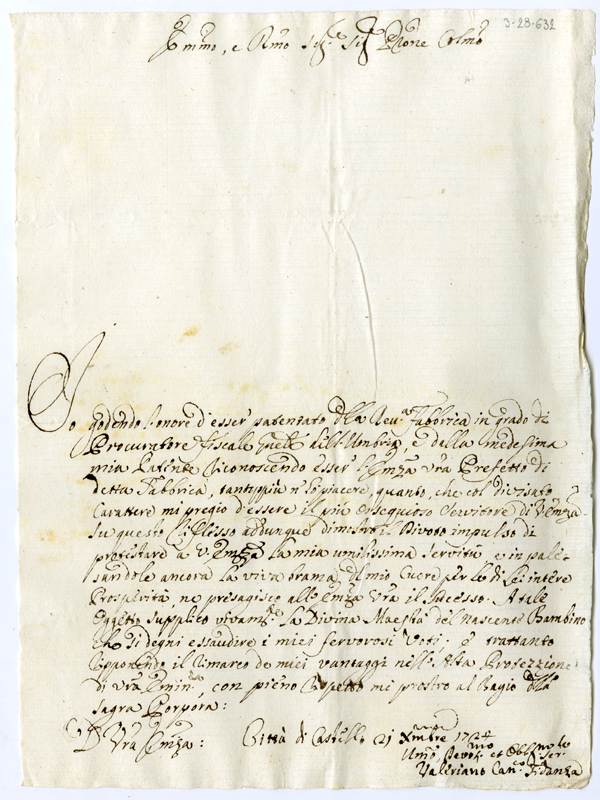 3-28-632
Emmo, e Rmo Sigr. Sigr. Prone Colmo
Io godendo l'onore d'esser patentato dlla Revda Fabbrica in grado di
Procuratore fiscale Gnle dell'Umbria, e dalla medesima
mia Patente riconoscendo esser l'Emza Vra Prefetto di
detta Fabbrica, tanto più n'ho piacere, quanto, che col divisato
Carattere mi pregio d'essere il più ossequioso Servitore di V. Emza.
Su questo riflesso addunque dimostro il Divoto impulso di
protestare a V. Emza la mia umilissima servitù e in pale-
sandole ancora la viva brama del mio Cuore per le di Lei intere
Prosperità ne presagisco all'Emza Vra il successo. A tale
Oggetto supplico vivamte la Divina Maestà del nascente Bambino
che si degni essaudire i miei fervorosi Voti; e trattanto
riponendo il rimarco de miei vantaggi nell'Alta Protezzione
di Vra Emin.za, con pieno rispetto mi prostro al Bagio dlla
sagra Porpora:
D Vra Emza: Città di Castello 21 Xmbre 1724
Umo Devotmo et Obblmo Ser.
Valeriano Canco Fidanza